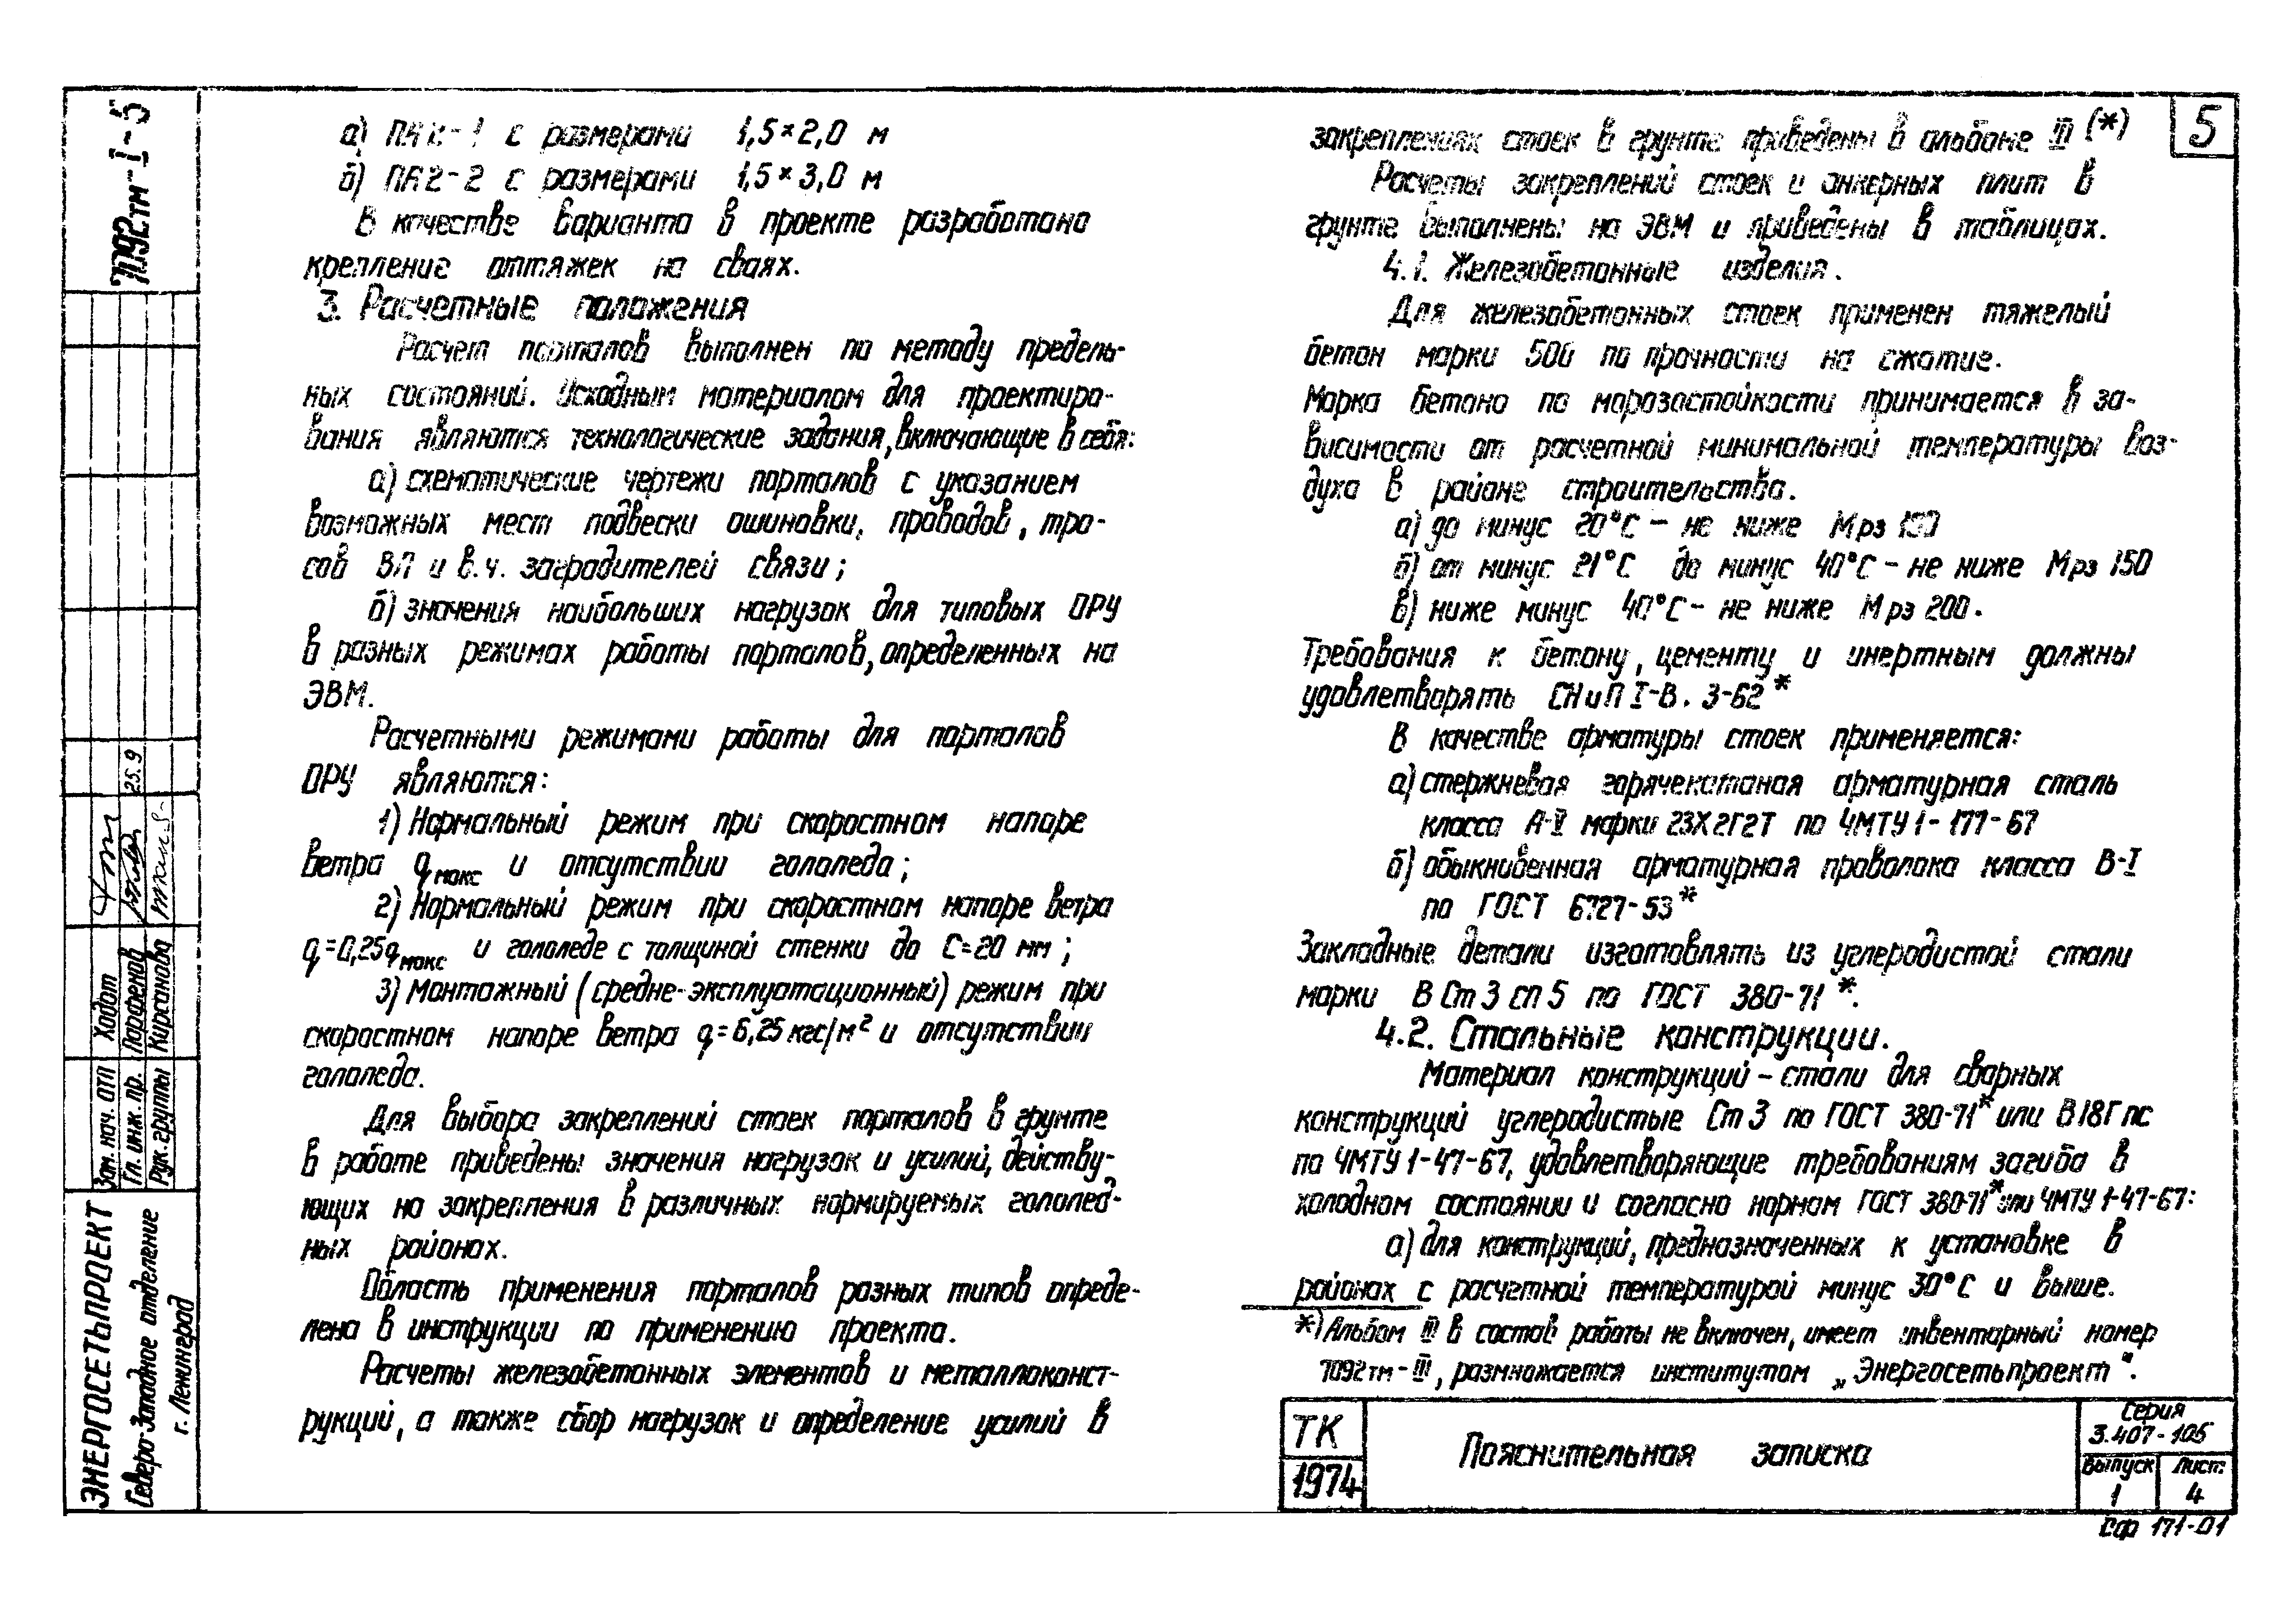 5
а) ПА2-1 с размерами 1,5×2,0 м
б) ПА2-2 с размерами 1,5×3,0 м
В качестве варианта в проекте разработано
крепление оттяжек на сваях.
3. Расчетные положения
Расчет порталов выполнен по методу предель-
ных состояний. Исходным материалом для проектиро-
вания являются технологические задания, включающие в себя:
а) схематические чертежи порталов с указанием
возможных мест подвески ошиновки, проводов, тро-
сов ВЛ и в.ч. заградителей связи;
б) значения наибольших нагрузок для типовых ОРУ
в разных режимах работы порталов, определенных на
ЭВМ.
Расчетными режимами работы для порталов
ОРУ являются:
1) Нормальный режим при скоростном напоре
ветра qмакс и отсутствии гололеда;
2) Нормальный режим при скоростном напоре ветра
q=0,25qмакс и гололеде с толщиной стенки до С=20 мм;
3) Монтажный (средне-эксплуатационный) режим при
скоростном напоре ветра q=6,25 кгс/м² и отсутствии
гололеда.
Для выбора закреплений стоек порталов в грунте
в работе приведены значения нагрузок и усилий, действу-
ющих на закрепления в различных нормируемых гололед-
ных районах.
Область применения порталов разных типов опреде-
лена в инструкции по применению проекта.
Расчеты железобетонных элементов и металлоконст-
рукций, а также сбор нагрузок и определение усилий в
закреплениях стоек в грунте приведены в альбоме III (*)
Расчеты закреплений стоек и анкерных плит в
грунте выполнены на ЭВМ и приведены в таблицах.
4.1. Железобетонные изделия.
Для железобетонных стоек применен тяжелый
бетон марки 500 по прочности на сжатие.
Марка бетона по морозостойкости принимается в за-
висимости от расчетной минимальной температуры воз-
духа в районе строительства.
а) до минус 20°С – не ниже Мрз 100
б) от минус 21°С до минус 40°С – не ниже Мрз 150
в) ниже минус 40°С – не ниже Мрз 200.
Требования к бетону, цементу и инертным должны
удовлетворять СНиП I-В. 3-62*
В качестве арматуры стоек применяется:
а) стержневая горячекатаная арматурная сталь
класса А-V марки 23Х2Г2Т по ЧМТУ 1-177-67
б) обыкновенная арматурная проволока класса В-I
по ГОСТ 6727-53*
Закладные детали изготовлять из углеродистой стали
марки ВСт3сп5 по ГОСТ 380-71*.
4.2. Стальные конструкции.
Материал конструкций – стали для сварных
конструкций углеродистые Ст3 по ГОСТ 380-71* или В18Гпс
по ЧМТУ 1-47-67, удовлетворяющие требованиям загиба в
холодном состоянии и согласно нормам ГОСТ 380-71* или ЧМТУ 1-47-67:
а) для конструкций, предназначенных к установке в
районах с расчетной температурой минус 30°С и выше.
*) Альбом III в состав работы не включен, имеет инвентарный номер
7092тм-III, размножается институтом „Энергосетьпроект".
ТК
1974
Пояснительная записка
Серия
3.407-105
Выпуск
1
Лист
4
Сф 171-01
7092тм-I-5
25.9
Зам. нач. ОТП Ходот
Гл. инж. пр. Парфенов
Рук. группы Кирсанова
ЭНЕРГОСЕТЬПРОЕКТ
Северо-Западное отделение
г. Ленинград